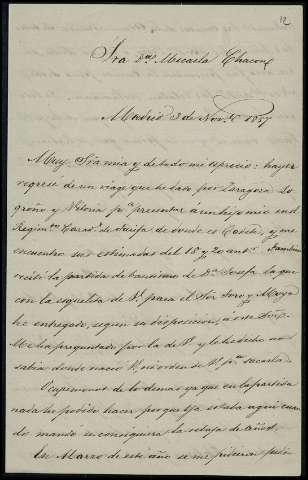 12
Sra Dª Micaela Chacon
Madrid 3 de Novbre 1857
Muy Sra mia y de todo mi aprecio: hayer
regresé de un viage que he dado por Zaragoza Lo-
groño y Vitoria pª presentar á un hijo mio en el
Regimto Cazads de Tarifa de donde es Cadete, y me
encuentro sus estimadas del 18 y 20 ante. Tambien
recibi la partida de bautismo de Dª Josefa la que
con la esquelita de V. para el Sor Toro y Moya
he entregado, segun su disposicion, á este
Me ha preguntado por la de V. y le he dicho no
sabia donde nació V. ni orden de V. pª sacarla.
Ocuparemonos de lo demas ya que en la partida
nada he podido hacer por que ya estaba aqui cuan-
do mandó se consiguiera la rebaja de años.
En Marzo de este año se me pidieron